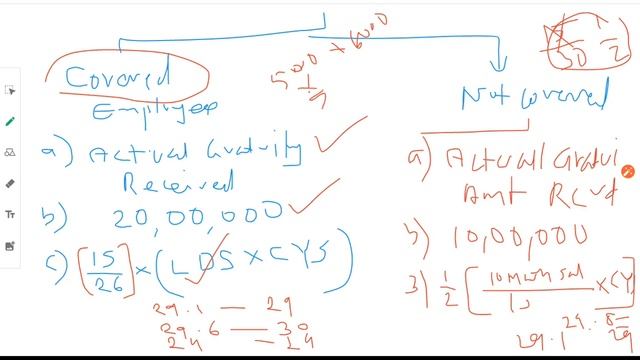 5000 + 6000
1/2
Covered
Employee
a) Actual Gratuity
Received
b) 20,00,000
c) [15/26] × (LDS × CYS)
29.1 — 29
29.6 — 30
29 — 29
Not Covered
a) Actuall Gratui
Amt Rcvd
b) 10,00,000
3) 1/2 [10 Month sal / 10 × CY]
29.1
29
Tт